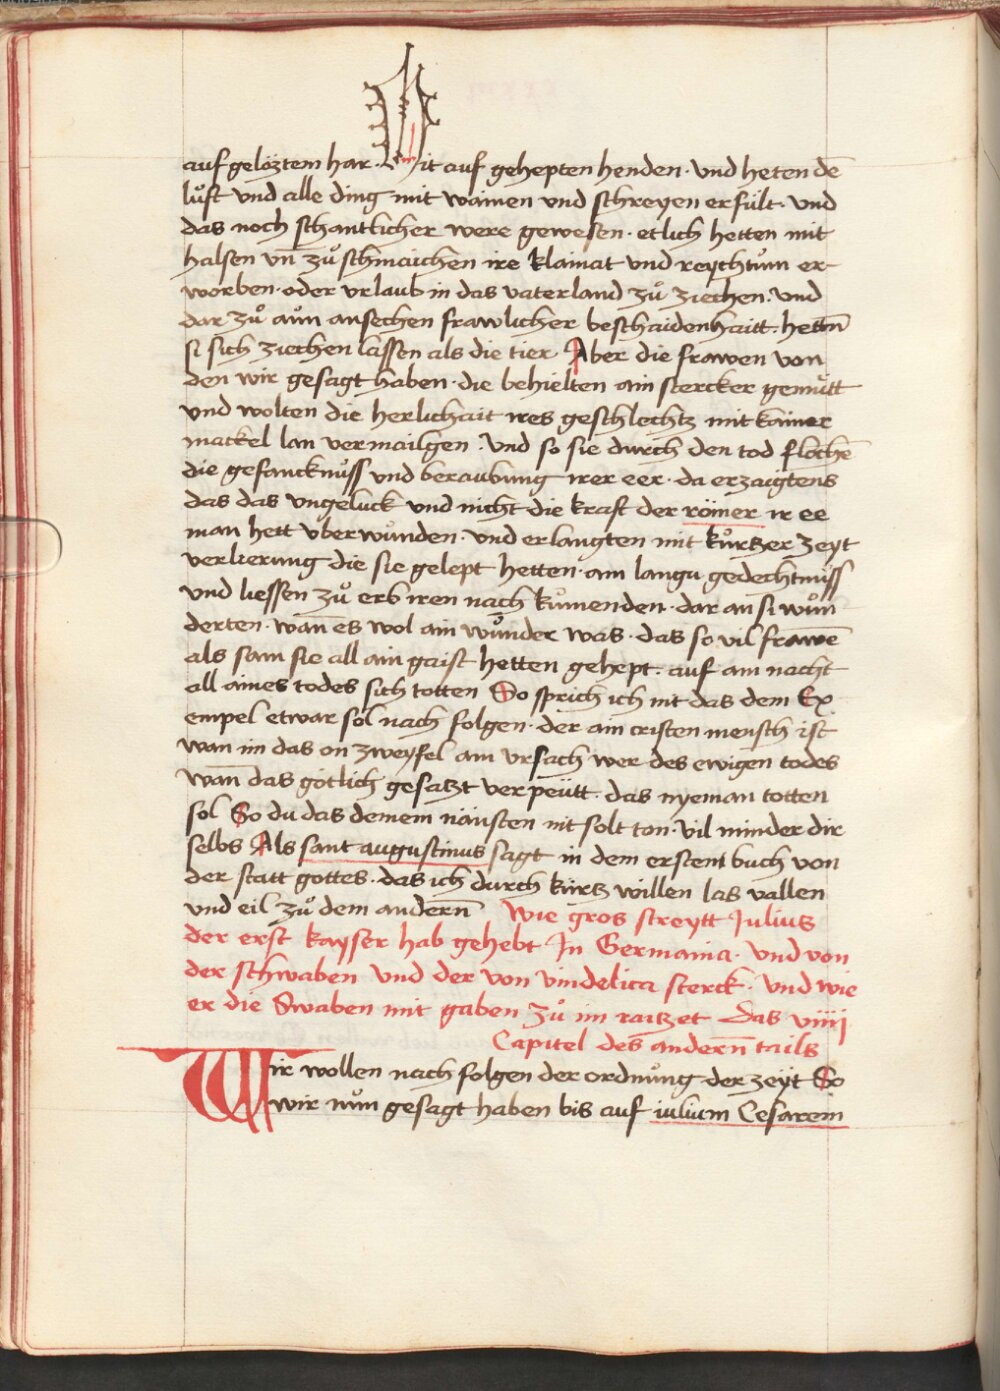 auf gelöztem har. Mit auf gehepten henden · und heten dē
lufft und alle ding mit wainen und schreyen erfült · und
das noch schantlicher were gewesen · etlich hetten mit
halsen vn̄ zů schmaichen ire klainat und reychtům er-
worben · oder vrlaub in das vaterland zů ziechen · und
dar zů aůn ansechen frawlicher beschaidenhaitt · hettn̄
si sich ziechen lassen als die tier. Aber die frawen von
den wir gesagt haben · die behielten ain stercker gemütt
und wolten die herlichait ires geschlechtz mit kainer
mackel lan vermailgen · Und so sie durch den tod flochē
die gefancknůss und beraubung irer eer · da erzaigtens
das das ungeluck und nicht die kraft der römer ir ee
man hett vberwůnden · und erlangten mit kůrtzer zeyt
verlierung die sie gelept hetten · ain langu gedechtnůss
und liessen zů erb iren nach kůmenden · dar an si wůn
derten · wan̄ es wol ain wůnder was · das so vil frawē
als sam sie all ain gaist hetten gehept · auf ain nacht
all aines todes sich totten So sprich ich nit das dem Ex
empel etwar sol nach folgen · der ain cristen mensch ist
wan im das on zweyfel ain ursach wer des ewigen todes
wan̄ das götlich gesatzt verpeütt · das nyeman totten
sol So du das deinem nänsten nit solt ton · vil minder dir
selbs Als sant augustinus sagt in dem ersten buch von
der statt gottes · das ich durch kürtz willen las vallen
und eil zů dem andern̄ Wie gros streytt Julius
der erst kayser hab gehebt In Germania · und von
der schwaben und der von vindelica sterck · und wie
er die Swaben mit gaben zů im raitzet Das viiij
Capitel des andern̄ tails
Wir wollen nach folgen der ordnůng der zeyt So
wir nůn gesagt haben bis auf iulium Cesarem